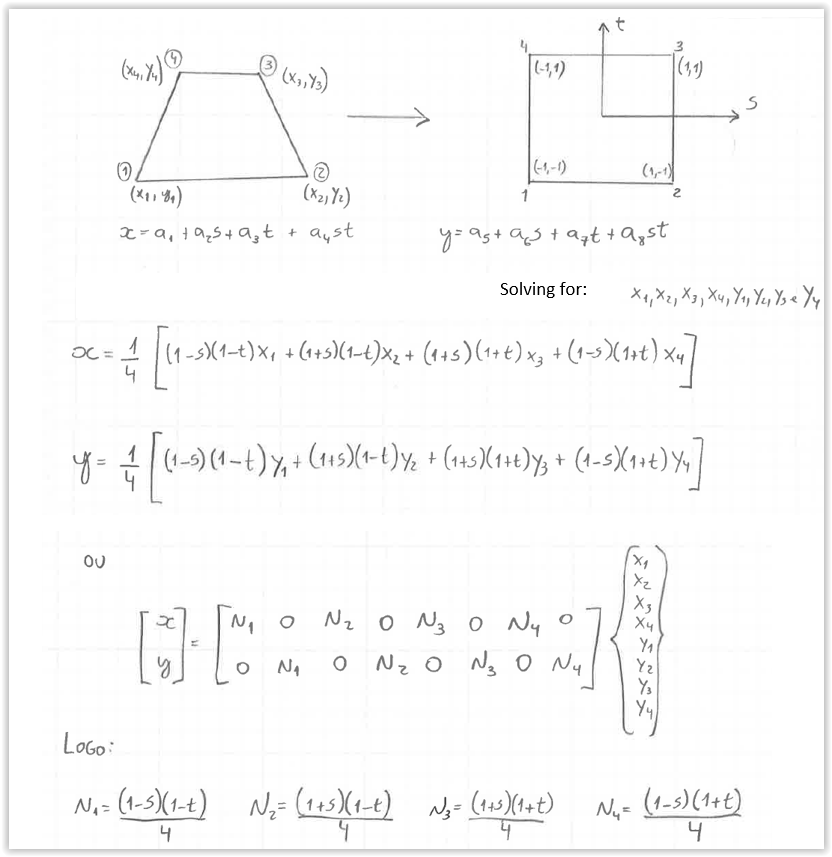 t
(x₄,y₄) ④ ③ (x₃,y₃) 4 3
(-1,1) (1,1)
s
① ② (-1,-1) (1,-1)
(x₁,y₁) (x₂,y₂) 1 2
x = a₁ + a₂s + a₃t + a₄st y = a₅ + a₆s + a₇t + a₈st
Solving for: x₁, x₂, x₃, x₄, y₁, y₂, y₃ e y₄
x = 1/4 [(1-s)(1-t)x₁ + (1+s)(1-t)x₂ + (1+s)(1+t)x₃ + (1-s)(1+t)x₄]
y = 1/4 [(1-s)(1-t)y₁ + (1+s)(1-t)y₂ + (1+s)(1+t)y₃ + (1-s)(1+t)y₄]
OU
[x y] = [N₁ 0 N₂ 0 N₃ 0 N₄ 0
0 N₁ 0 N₂ 0 N₃ 0 N₄]
{x₁
x₂
x₃
x₄
y₁
y₂
y₃
y₄}
LOGO:
N₁ = (1-s)(1-t)/4 N₂ = (1+s)(1-t)/4 N₃ = (1+s)(1+t)/4 N₄ = (1-s)(1+t)/4